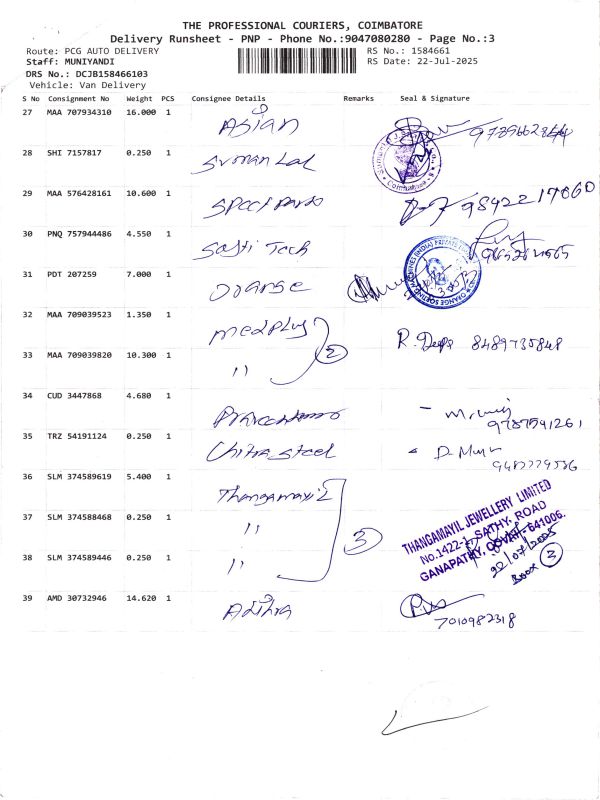 THE PROFESSIONAL COURIERS, COIMBATORE
Delivery Runsheet - PNP - Phone No.:9047080280 - Page No.:3
Route: PCG AUTO DELIVERY
RS No.: 1584661
Staff: MUNIYANDI
RS Date: 22-Jul-2025
DRS No.: DCJB158466103
Vehicle: Van Delivery
S No Consignment No Weight PCS Consignee Details Remarks Seal & Signature
27 MAA 707934310 16.000 1 Asian
28 SHI 7157817 0.250 1
Coimbatore
29 MAA 576428161 10.600 1
30 PNQ 757944486 4.550 1 Sakti Tech
31 PDT 207259 7.000 1 Orange
ORANGE SORTING MACHINES (INDIA) PRIVATE
32 MAA 709039523 1.350 1 medplus
2
R. Deepa 8489735848
33 MAA 709039820 10.300 1 "
34 CUD 3447868 4.680 1
9787541261
35 TRZ 54191124 0.250 1 Chitra steel
36 SLM 374589619 5.400 1 Thangamayil
37 SLM 374588468 0.250 1 "
3
THANGAMAYIL JEWELLERY LIMITED
No.1422-1, SATHY, ROAD
GANAPATHY, COVAI-641006.
22/07/2025
38 SLM 374589446 0.250 1 "
Boox 3
39 AMD 30732946 14.620 1 Adithra
7010982318